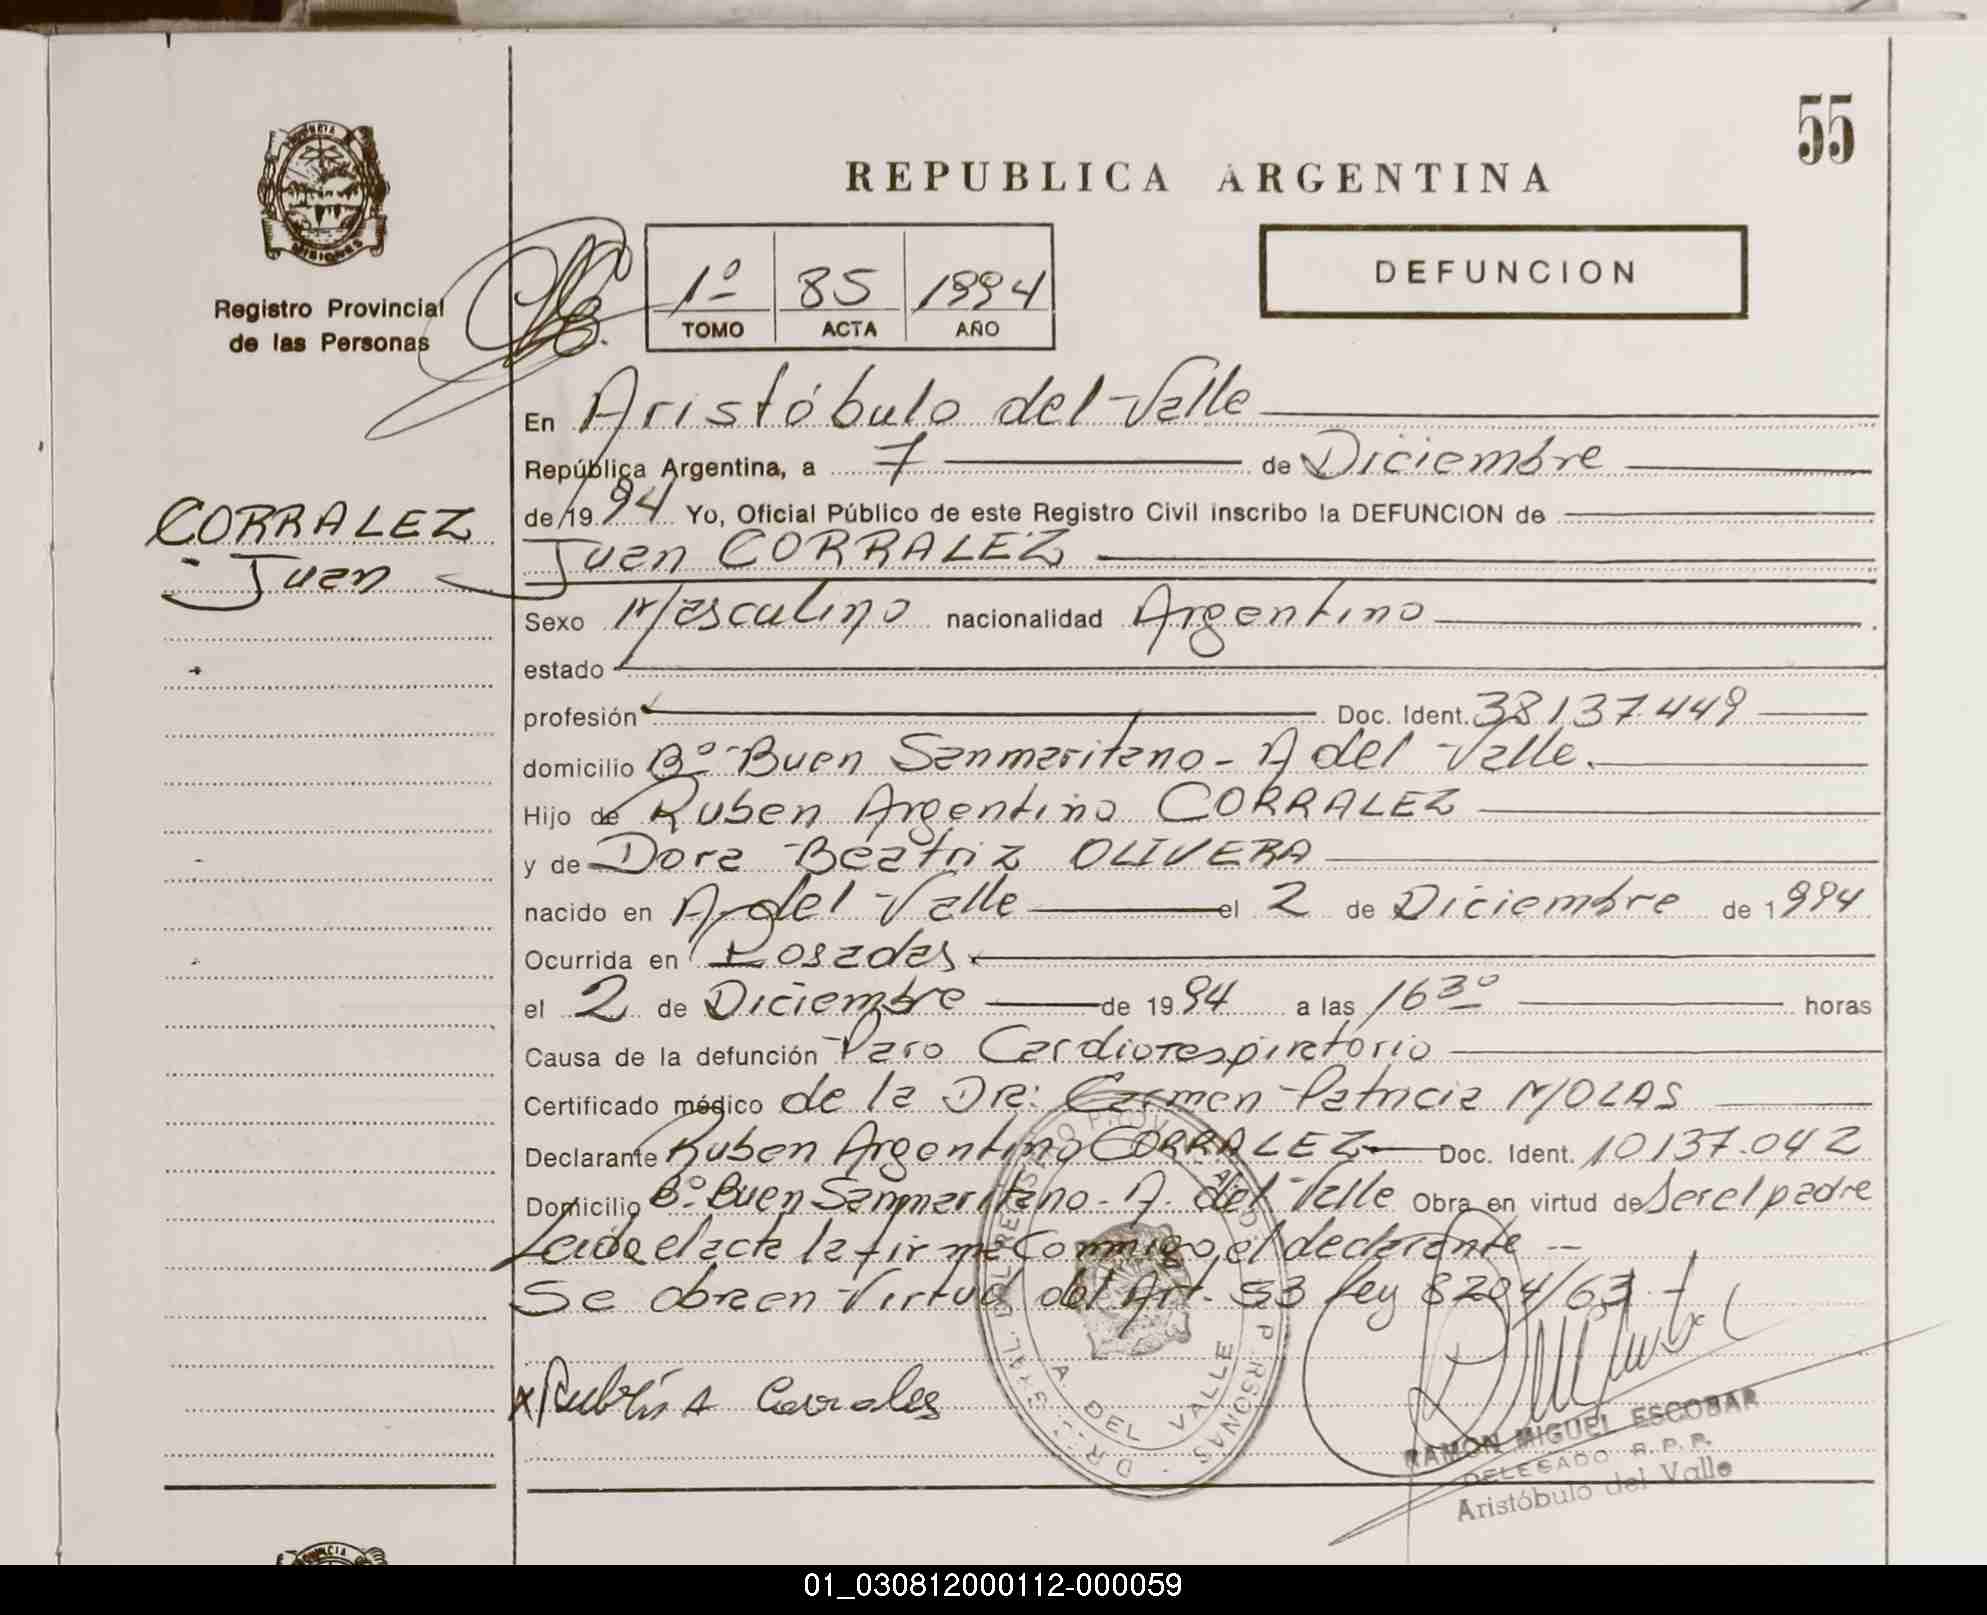 55
REPUBLICA ARGENTINA
PROVINCIA DE
MISIONES
Registro Provincial
de las Personas
1º 85 1994
TOMO ACTA AÑO
DEFUNCION
En Aristóbulo del Valle
República Argentina, a 7 de Diciembre
de 1994 Yo, Oficial Público de este Registro Civil inscribo la DEFUNCION de
CORRALEZ
Juan
Juan CORRALEZ
Sexo Masculino nacionalidad Argentino
estado
profesión Doc. Ident. 38137.449
domicilio Bº Buen Sanmaritano - A del Valle.
Hijo de Ruben Argentino CORRALEZ
y de Dora Beatriz OLIVERA
nacido en A. del Valle el 2 de Diciembre de 1994
Ocurrida en Posadas
el 2 de Diciembre de 1994 a las 16 3º horas
Causa de la defunción Paro Cardiorespiratorio
Certificado médico de la DRa: Carmen Patricia MOLAS
Declarante Ruben Argentino CORRALEZ Doc. Ident. 10137.042
Domicilio Bº Buen Sanmaritano - A. del Valle Obra en virtud de Ser el padre
Leida el acta la firma Conmigo el declarante --
Se obra en Virtud del Art. 53 Ley 8204/63 -
x Rubén A Corrales
A. DEL VALLE
RAMON MIGUEL ESCOBAR
DELEGADO R.P.P.
Aristóbulo del Valle
01_030812000112-000059